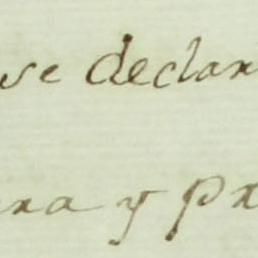 se declar
ra y pr